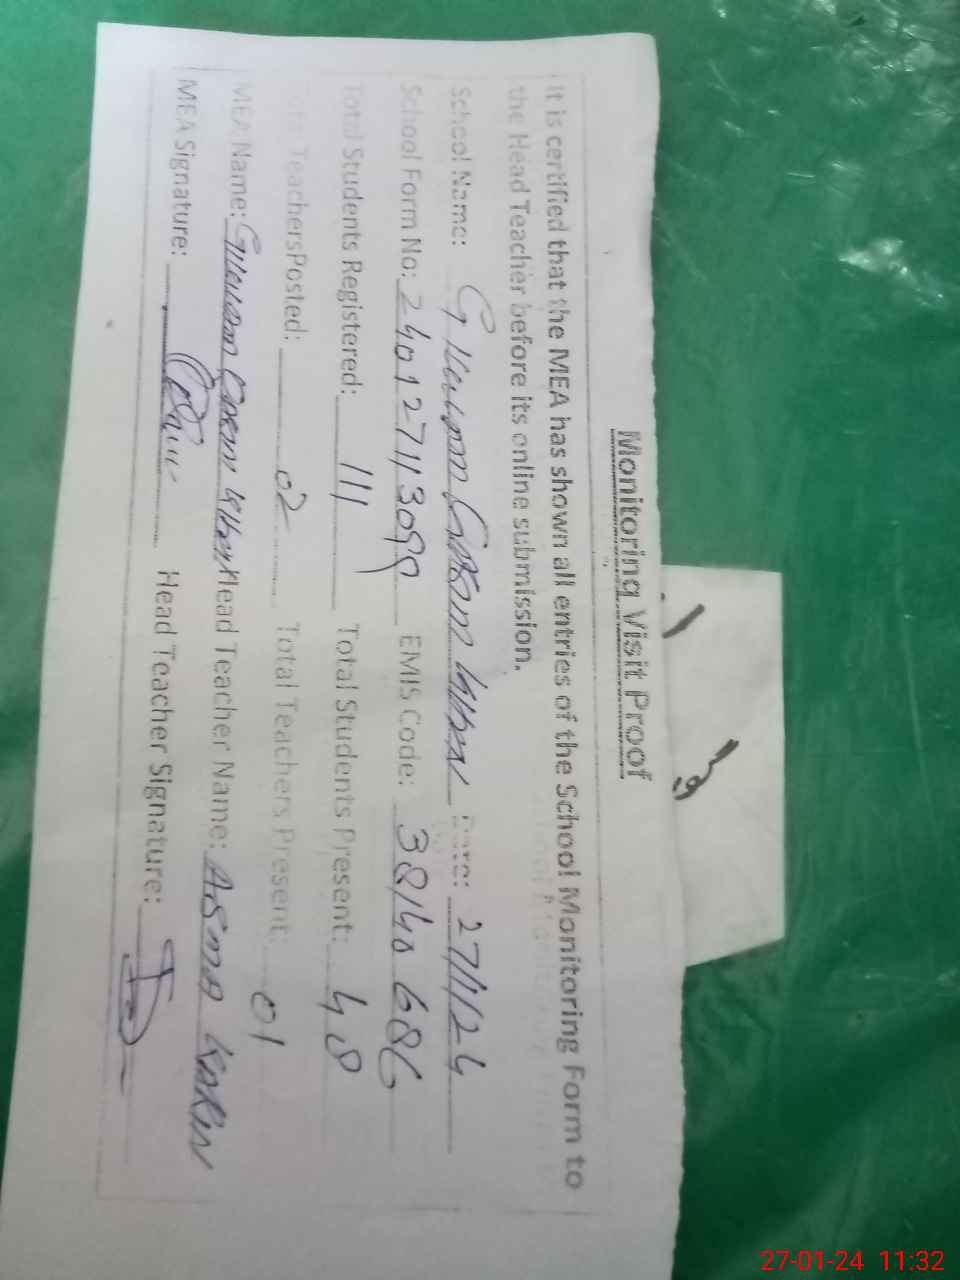 Monitoring Visit Proof
It is certified that the MEA has shown all entries of the School Monitoring Form to
the Head Teacher before its online submission.
School Name: Date: 27/1/24
School Form No: 24012711309 EMIS Code: 38140686
Total Students Registered: 111 Total Students Present: 48
Teachers Posted: 02 Total Teachers Present: 01
MEA Name: Head Teacher Name: Asma
MEA Signature: Head Teacher Signature:
27-01-24 11:32